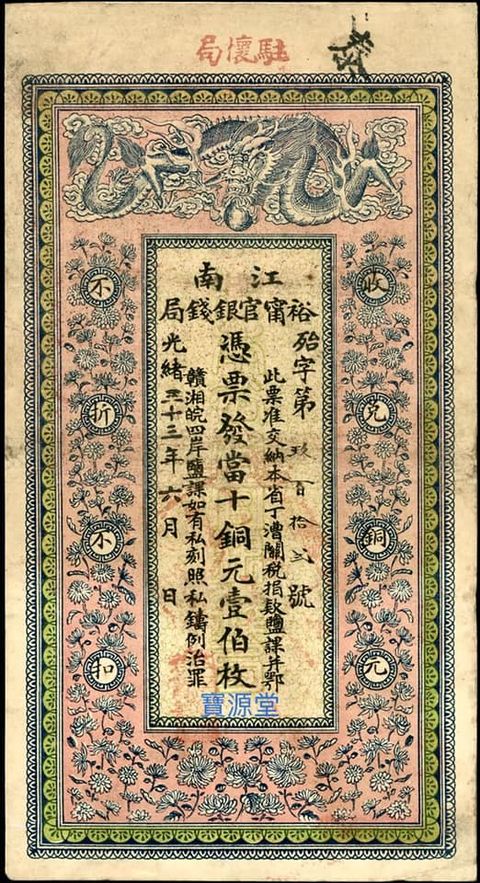 駐懷局
江南
裕甯官銀錢局
收兌銅元
殆字第玖百拾弍號
此票准交納本省丁漕關稅捐款鹽課并鄂
憑票發當十銅元壹伯枚
贛湘皖四岸鹽課如有私刻照私鑄例治罪
光緒三十三年六月 日
不折不扣
寶源堂